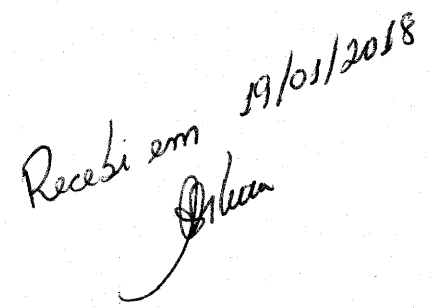 Recebi em 19/01/2018